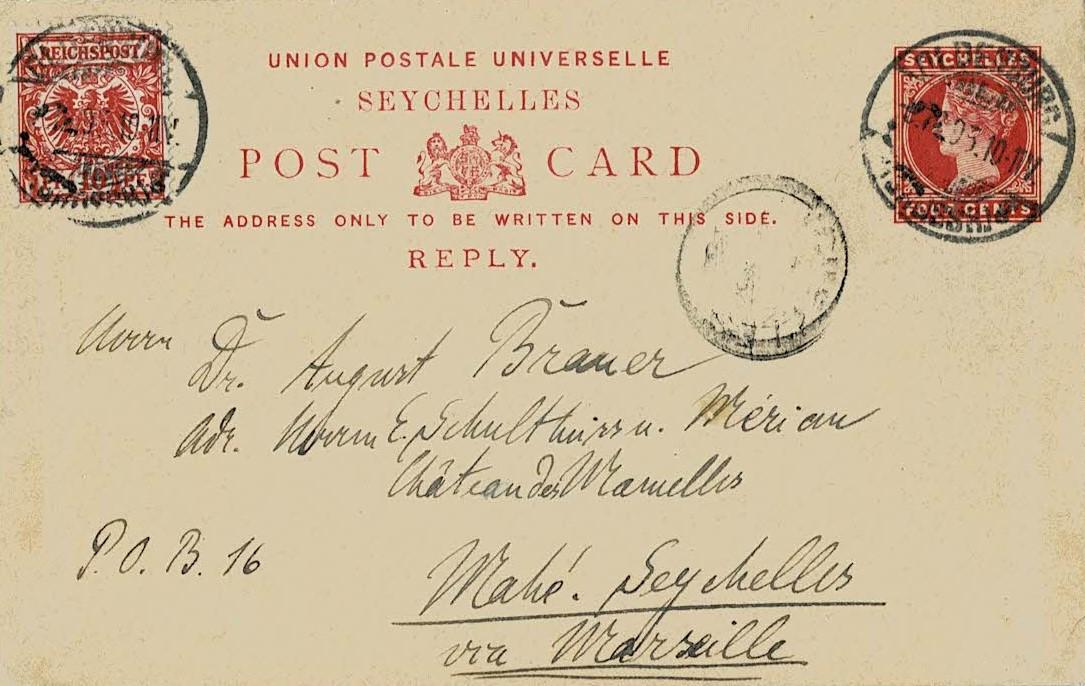 REICHSPOST
10
UNION POSTALE UNIVERSELLE
SEYCHELLES
POST CARD
THE ADDRESS ONLY TO BE WRITTEN ON THIS SIDE.
REPLY.
SEYCHELLES
FOUR CENTS
Herrn
Dr. August Brauer
Adr. Herrn E. Schultheiss u. Mérian
Château des Mamelles
P. O. B. 16
Mahé. Seychelles
via Marseille